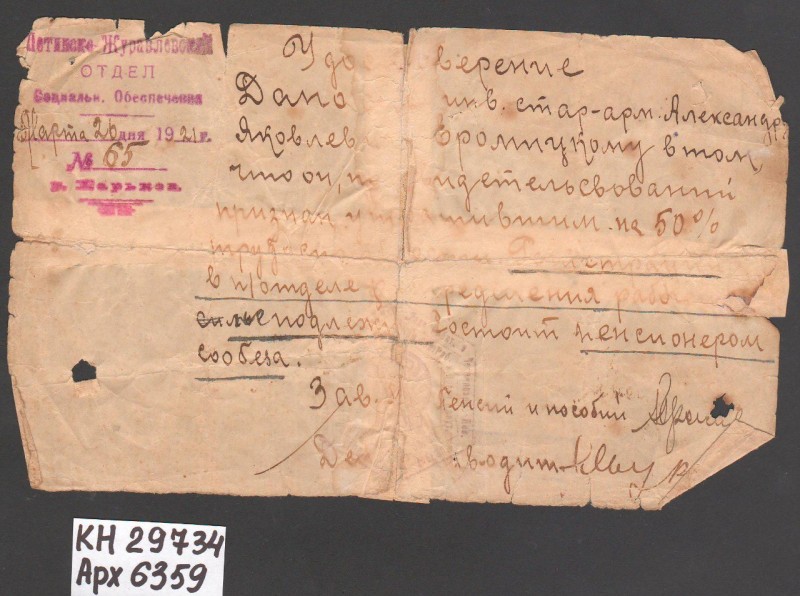 Петинско-Журавлевский
ОТДЕЛ
Социальн. Обеспечения
Марта 26 дня 1921 г.
№ 65
г. Харьков
Удо верение
Дано инв. стар-арм. Александр
Яковлев вромицкому в том,
что он, п идетельсвовании
признан у ившим на 50%
труд Регистра
в п/отделе ределения рабо
силы подлеж состоит пенсионером
собеза.
Зав. Пенсий и пособий
Де водит.
КН 29734
Арх 6359